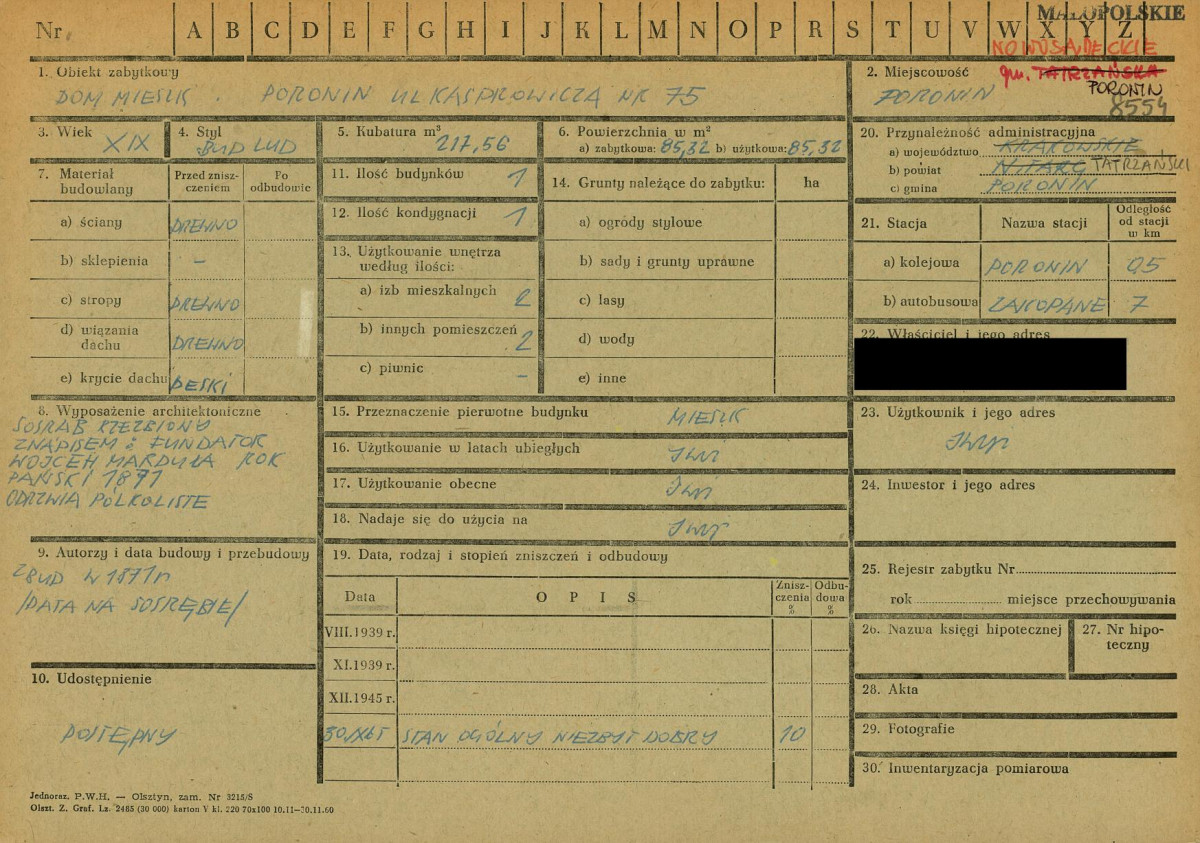 Nr. A B C D E F G H I J K L M N O P R S T U V W X Y Z
MAŁOPOLSKIE
NOWOSĄDECKIE
gm. TATRZAŃSKA
PORONIN
8554
1. Obiekt zabytkowy
DOM MIESZK. PORONIN UL KASPROWICZA NR 75
2. Miejscowość
PORONIN
3. Wiek
XIX
4. Styl
BUD LUD
5. Kubatura m³
217,56
6. Powierzchnia w m²
a) zabytkowa: 85,32 b) użytkowa: 85,32
7. Materiał budowlany
Przed zniszczeniem
Po odbudowie
a) ściany DREWNO
b) sklepienia –
c) stropy DREWNO
d) wiązania dachu DREWNO
e) krycie dachu DESKI
8. Wyposażenie architektoniczne
SOSRĄB RZEZBIONY
Z NAPISEM : FUNDATOR
WOJCEH MARDUŁA ROK
PAŃSKI 1871
ODRZWIA PÓŁKOLISTE
9. Autorzy i data budowy i przebudowy
ZBUD W 1871 r
/DATA NA SOSRĘBIE/
10. Udostępnienie
DOSTĘPNY
11. Ilość budynków 1
12. Ilość kondygnacji 1
13. Użytkowanie wnętrza
według ilości:
a) izb mieszkalnych 2
b) innych pomieszczeń 2
c) piwnic –
14. Grunty należące do zabytku: ha
a) ogrody stylowe
b) sady i grunty uprawne
c) lasy
d) wody
e) inne
15. Przeznaczenie pierwotne budynku MIESZK
16. Użytkowanie w latach ubiegłych
17. Użytkowanie obecne
18. Nadaje się do użycia na
19. Data, rodzaj i stopień zniszczeń i odbudowy
Data
OPIS
Zniszczenia %
Odbudowa %
VIII.1939 r.
XI.1939 r.
XII.1945 r.
STAN OGÓLNY NIEZBYT DOBRY 10
20. Przynależność administracyjna
a) województwo KRAKOWSKIE
b) powiat N.TARG TATRZAŃSKI
c) gmina PORONIN
21. Stacja
Nazwa stacji
Odległość od stacji w km
a) kolejowa PORONIN 0,5
b) autobusowa ZAKOPANE 7
22. Właściciel i jego adres
23. Użytkownik i jego adres
24. Inwestor i jego adres
25. Rejestr zabytku Nr
rok miejsce przechowywania
26. Nazwa księgi hipotecznej
27. Nr hipoteczny
28. Akta
29. Fotografie
30. Inwentaryzacja pomiarowa
Jednoraz. P.W.H. — Olsztyn, zam. Nr 3215/S
Olszt. Z. Graf. Lz. 2485 (30 000) karton V kl. 220 70x100 10.11–30.11.60